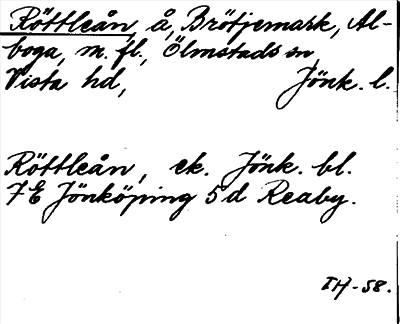 Röttleån å, Brötjemark, Al-
boga, m. fl., Ölmstads sn,
Vista hd, Jönk. l.
Röttleån, ek. Jönk. bl.
7E Jönköping 5d Reaby.
IH-58.